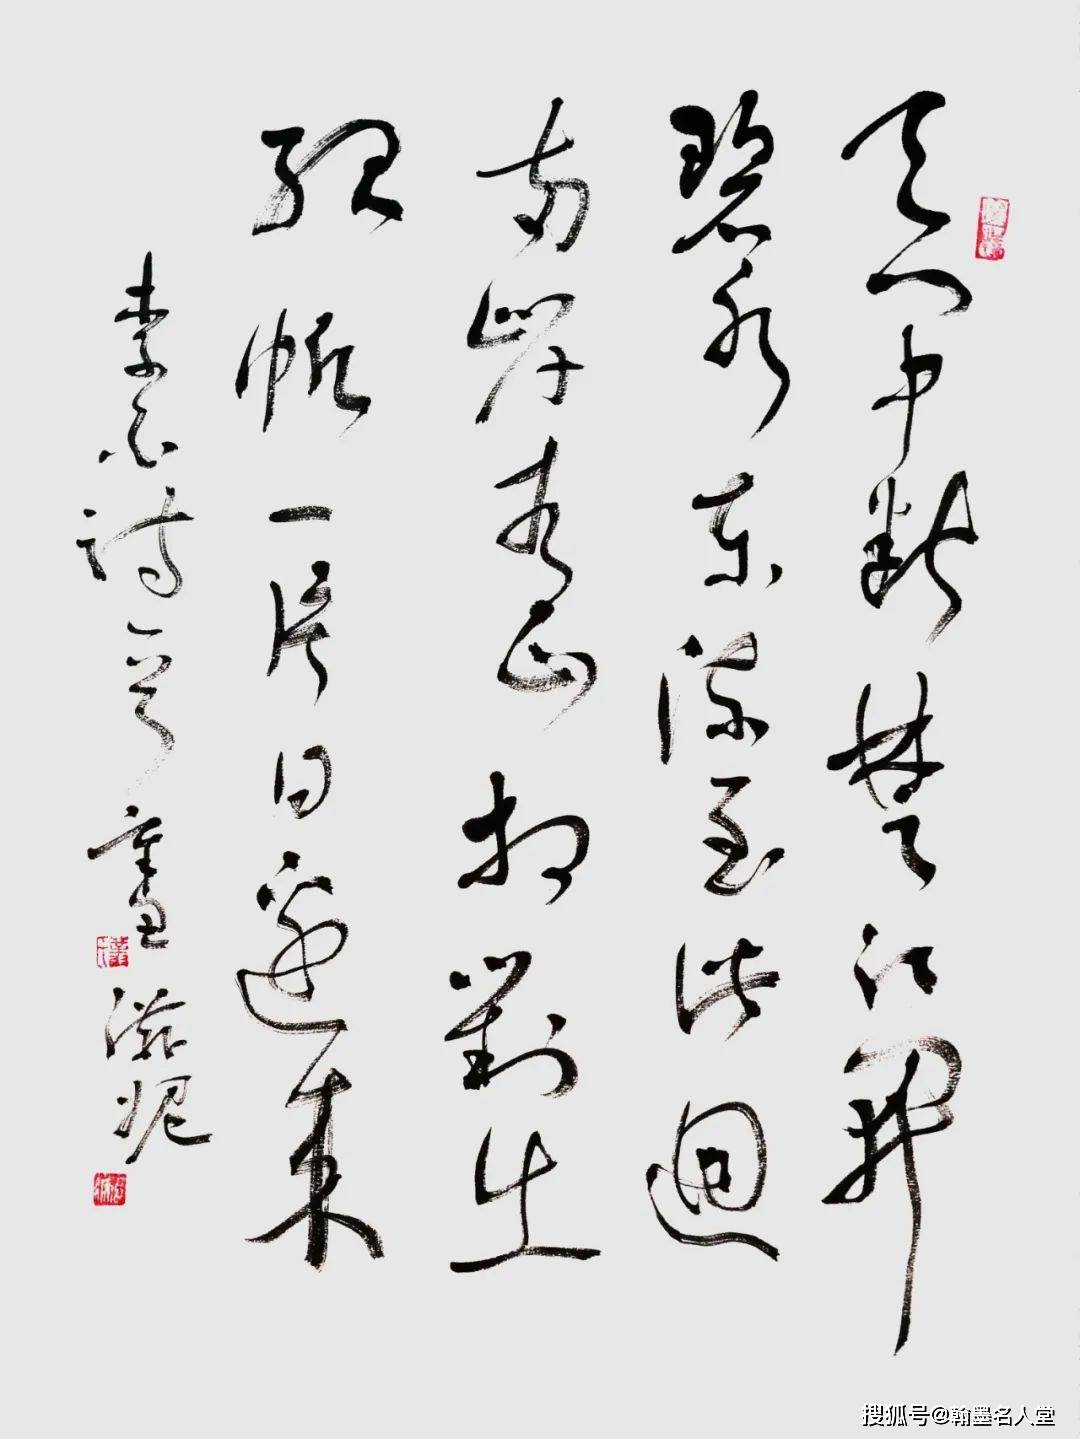 天门中断楚江开
碧水东流至此迴
两岸青山相對出
孤帆一片日邊来
李白诗
搜狐号@翰墨名人堂